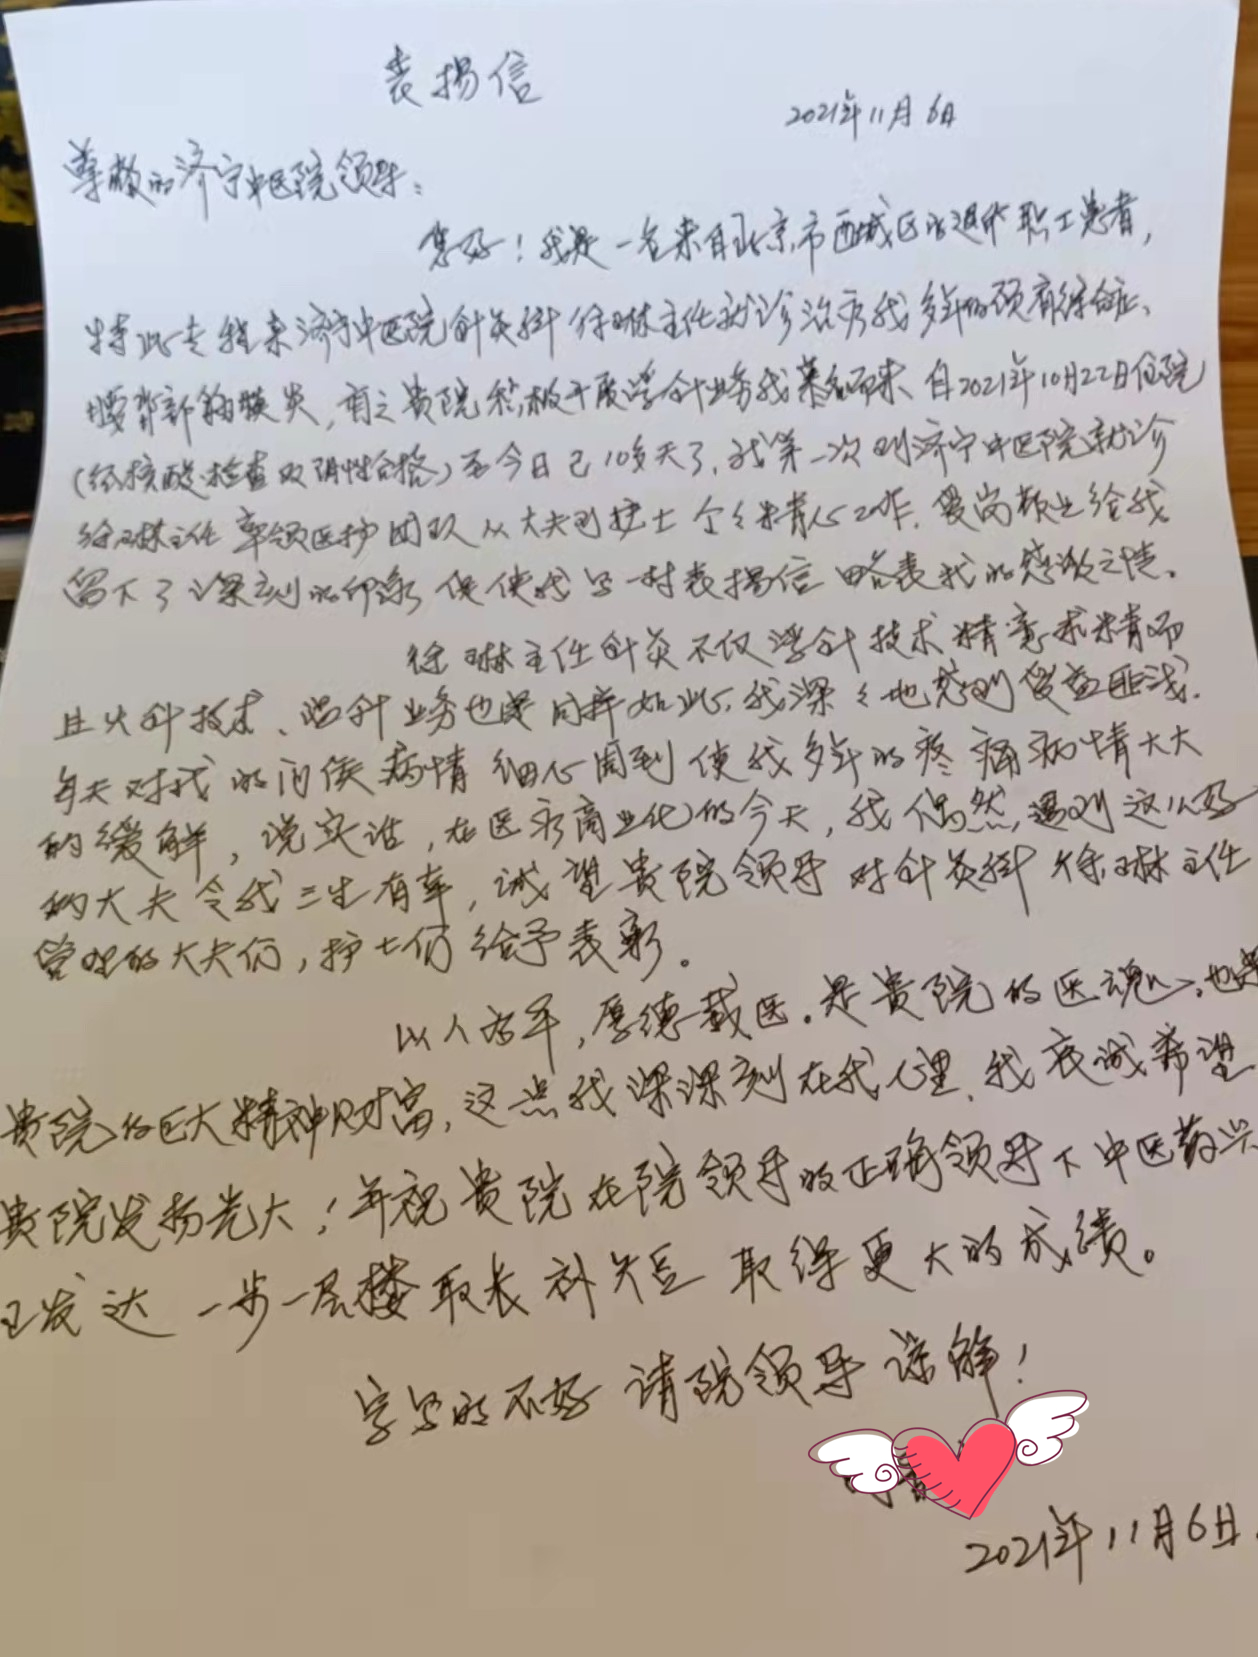 表扬信
2021年11月6日
尊敬的济宁中医院领导：
您好！我是一名来自北京市西城区的退休职工患者，
特此专程来济宁中医院针灸科徐琳主任就诊治疗我多年的颈肩综合症、
腰背部筋膜炎，有之贵院积极开展浮针业务我慕名而来 自2021年10月22日住院
（经核酸检查双阴性合格）至今日已10多天了，我第一次到济宁中医院就诊
徐琳主任率领医护团队从大夫到护士个个精心工作，爱岗敬业给我
留下了深刻的印象 促使我写一封表扬信 略表我的感激之情。
徐琳主任针灸不仅浮针技术精意求精而
且火针技术、温针业务也是同样如此，我深深地感到受益匪浅.
每天对我的问候病情 细心周到 使我多年的疼痛病情大大
的缓解，说实话，在医疗商业化的今天，我偶然遇到这么好
的大夫令我三生有幸，诚望贵院领导对针灸科 徐琳主任
管理的大夫们，护士们给予表彰。
以人为本，厚德载医。是贵院的医魂，也是
贵院的巨大精神财富，这点我深深刻在我心里，我衷诚希望
贵院发扬光大！并祝贵院在院领导的正确领导下中医药兴
旺发达 一步一层楼 取长补短 取得更大的成绩。
字写的不好 请院领导谅解！
2021年11月6日.